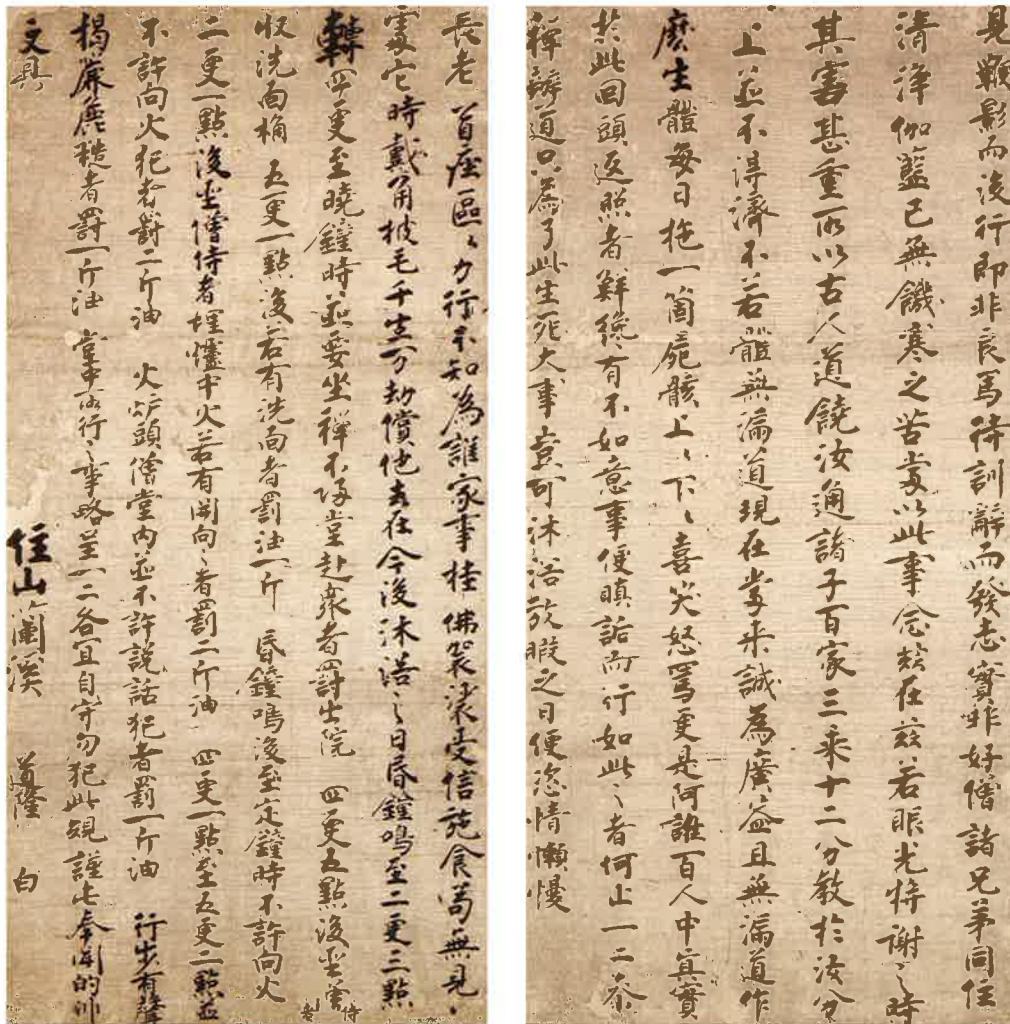 見鞭影而後行即非良馬待訓辭而發志實非好僧諸兄弟同住
清淨伽藍已無饑寒之苦當以此事念茲在茲若眼光將謝之時
其害甚重所以古人道饒汝通諸子百家三乘十二分教於汝分
上並不得濟不若體無漏道現在當来誠為廣益且無漏道作
麼生體每日拖一箇屍骸上々下々喜笑怒罵更是阿誰百人中真實
於此回頭返照者鮮纔有不如意事便瞋詬而行如此之者何止一二参
禪辦道只為了此生死大事豈可沐浴放暇之日便恣情懶慢
長老首座區々力行不知為誰家事掛佛袈裟受信施食苟無見
處它時戴角披毛千生万劫償他去在今後沐浴之日昏鐘鳴至二更三點
轉四更至曉鐘時並要坐禪不歸堂赴衆者罰出院 四更五點後坐堂侍者
収洗面桶 五更一點後若有洗面者罰油一斤 昏鐘鳴後至定鐘時不許向火
二更一點後坐僧侍者埋爐中火若有開向之者罰二斤油 四更一點至五更二點並
不許向火犯者罰二斤油 火炉頭僧堂内並不許說話犯者罰一斤油 行步有聲
揭簾麁糙者罰一斤油 堂中所行之事略呈一二各宜自守勿犯此規謹此奉聞的
文具 住山蘭溪 道隆 白